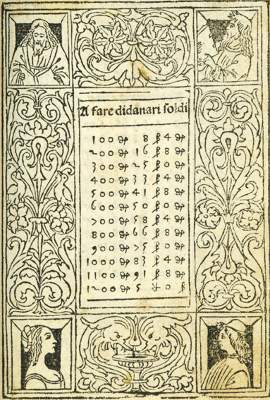 A fare didanari soldi
100 đ 8 ß 4 đ
200 đ 16 ß 8 đ
300 đ 25 ß 0 đ
400 đ 33 ß 4 đ
500 đ 41 ß 8 đ
600 đ 50 ß 0 đ
700 đ 58 ß 4 đ
800 đ 66 ß 8 đ
900 đ 75 ß 0 đ
1000 đ 83 ß 4 đ
1100 đ 91 ß 8 đ
1200 đ 100 ß 0 đ